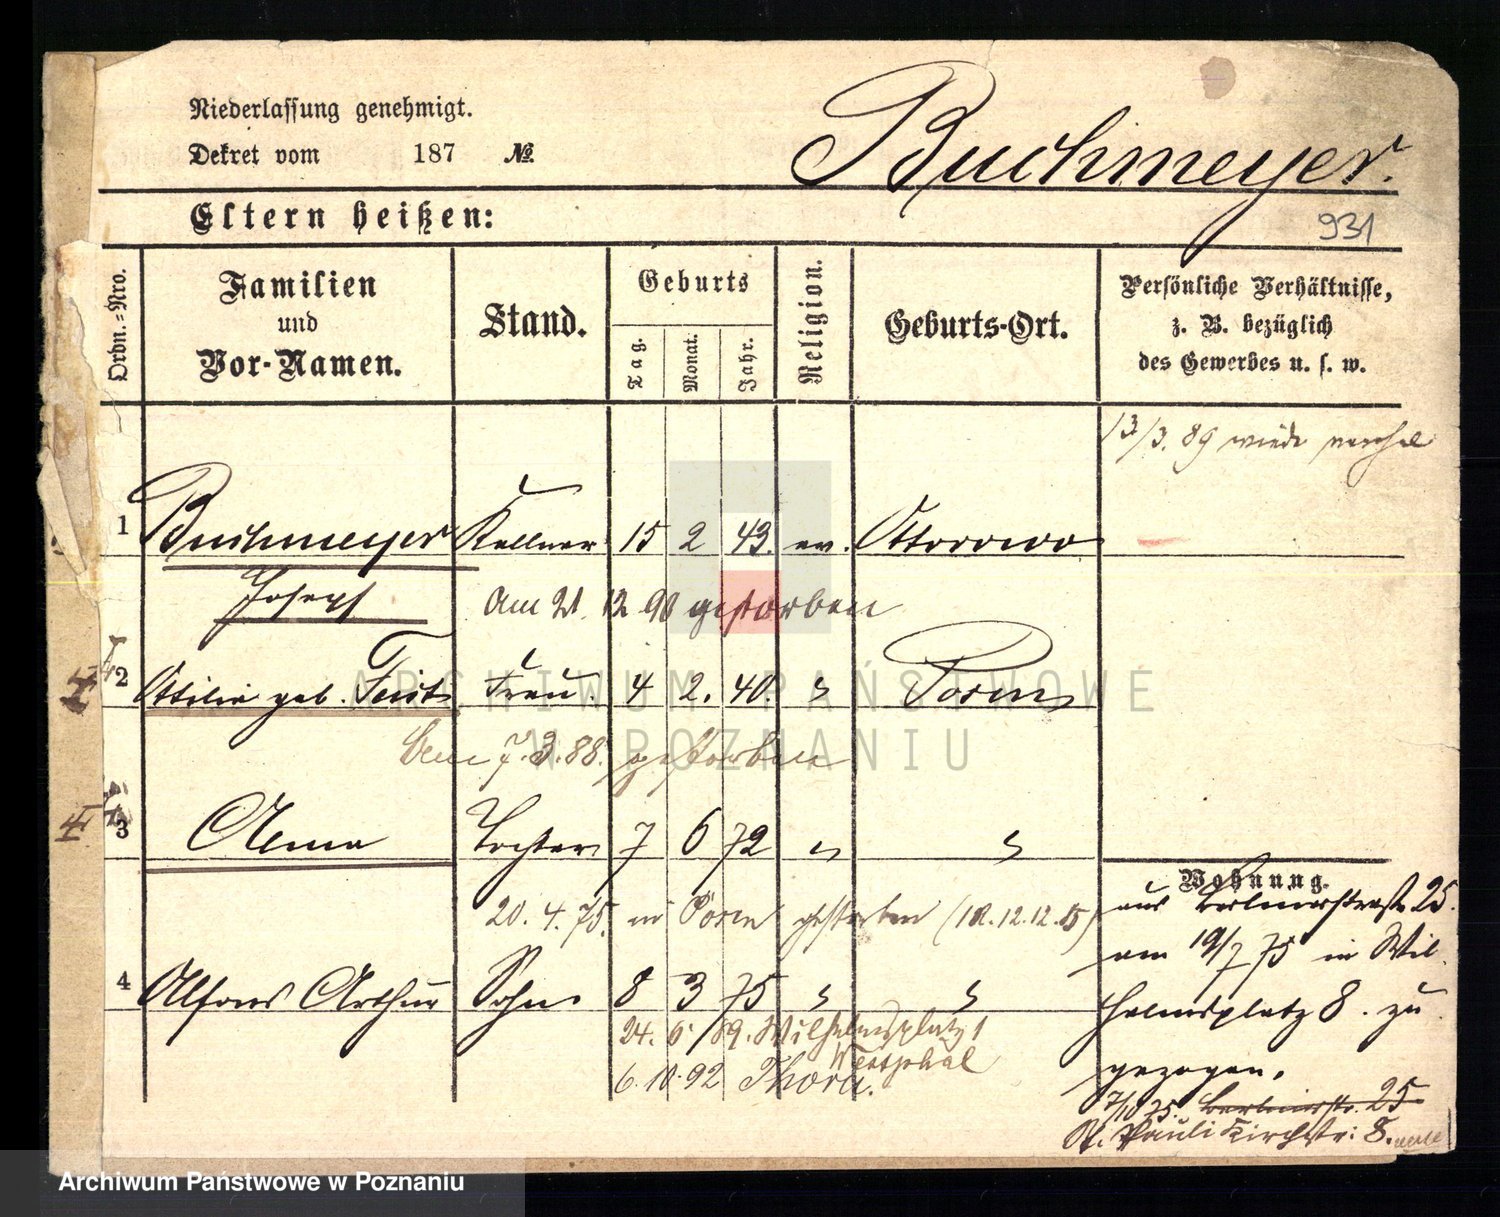 Niederlassung genehmigt.
Dekret vom 187 №
Buchmeyer.
Eltern heißen:
931
Ordn.-Nro.
Familien
und
Vor-Namen.
Stand.
Geburts
Tag.
Monat.
Jahr.
Religion.
Geburts-Ort.
Persönliche Verhältnisse,
z. B. bezüglich
des Gewerbes u. s. w.
13/3. 89
1 Buchmeyer Kellner 15 2 43. ev. Ottorowo
Joseph
Am 21. 12 90 gestorben
2 Ottilie geb. Feist Frau. 4 2. 40. " Posen
7. 3. 88. gestorben
3 Anna Tochter 7 6 72 " "
20. 4. 75. in Posen gestorben
4 Alfons Arthur Sohn 8 3 75 " "
24. 6. 89. Wilhelmsplatz 1
Westphal
6. 10. 92 Thorn.
Wohnung.
aus Berlinerstraße 25.
am 19/7 75 in Wil-
helmsplatz 8. zu
gezogen.
7/10 75. Berlinerstr. 25
St. Pauli Kirchstr: 8.
ARCHIWUM PAŃSTWOWE
W POZNANIU
Archiwum Państwowe w Poznaniu